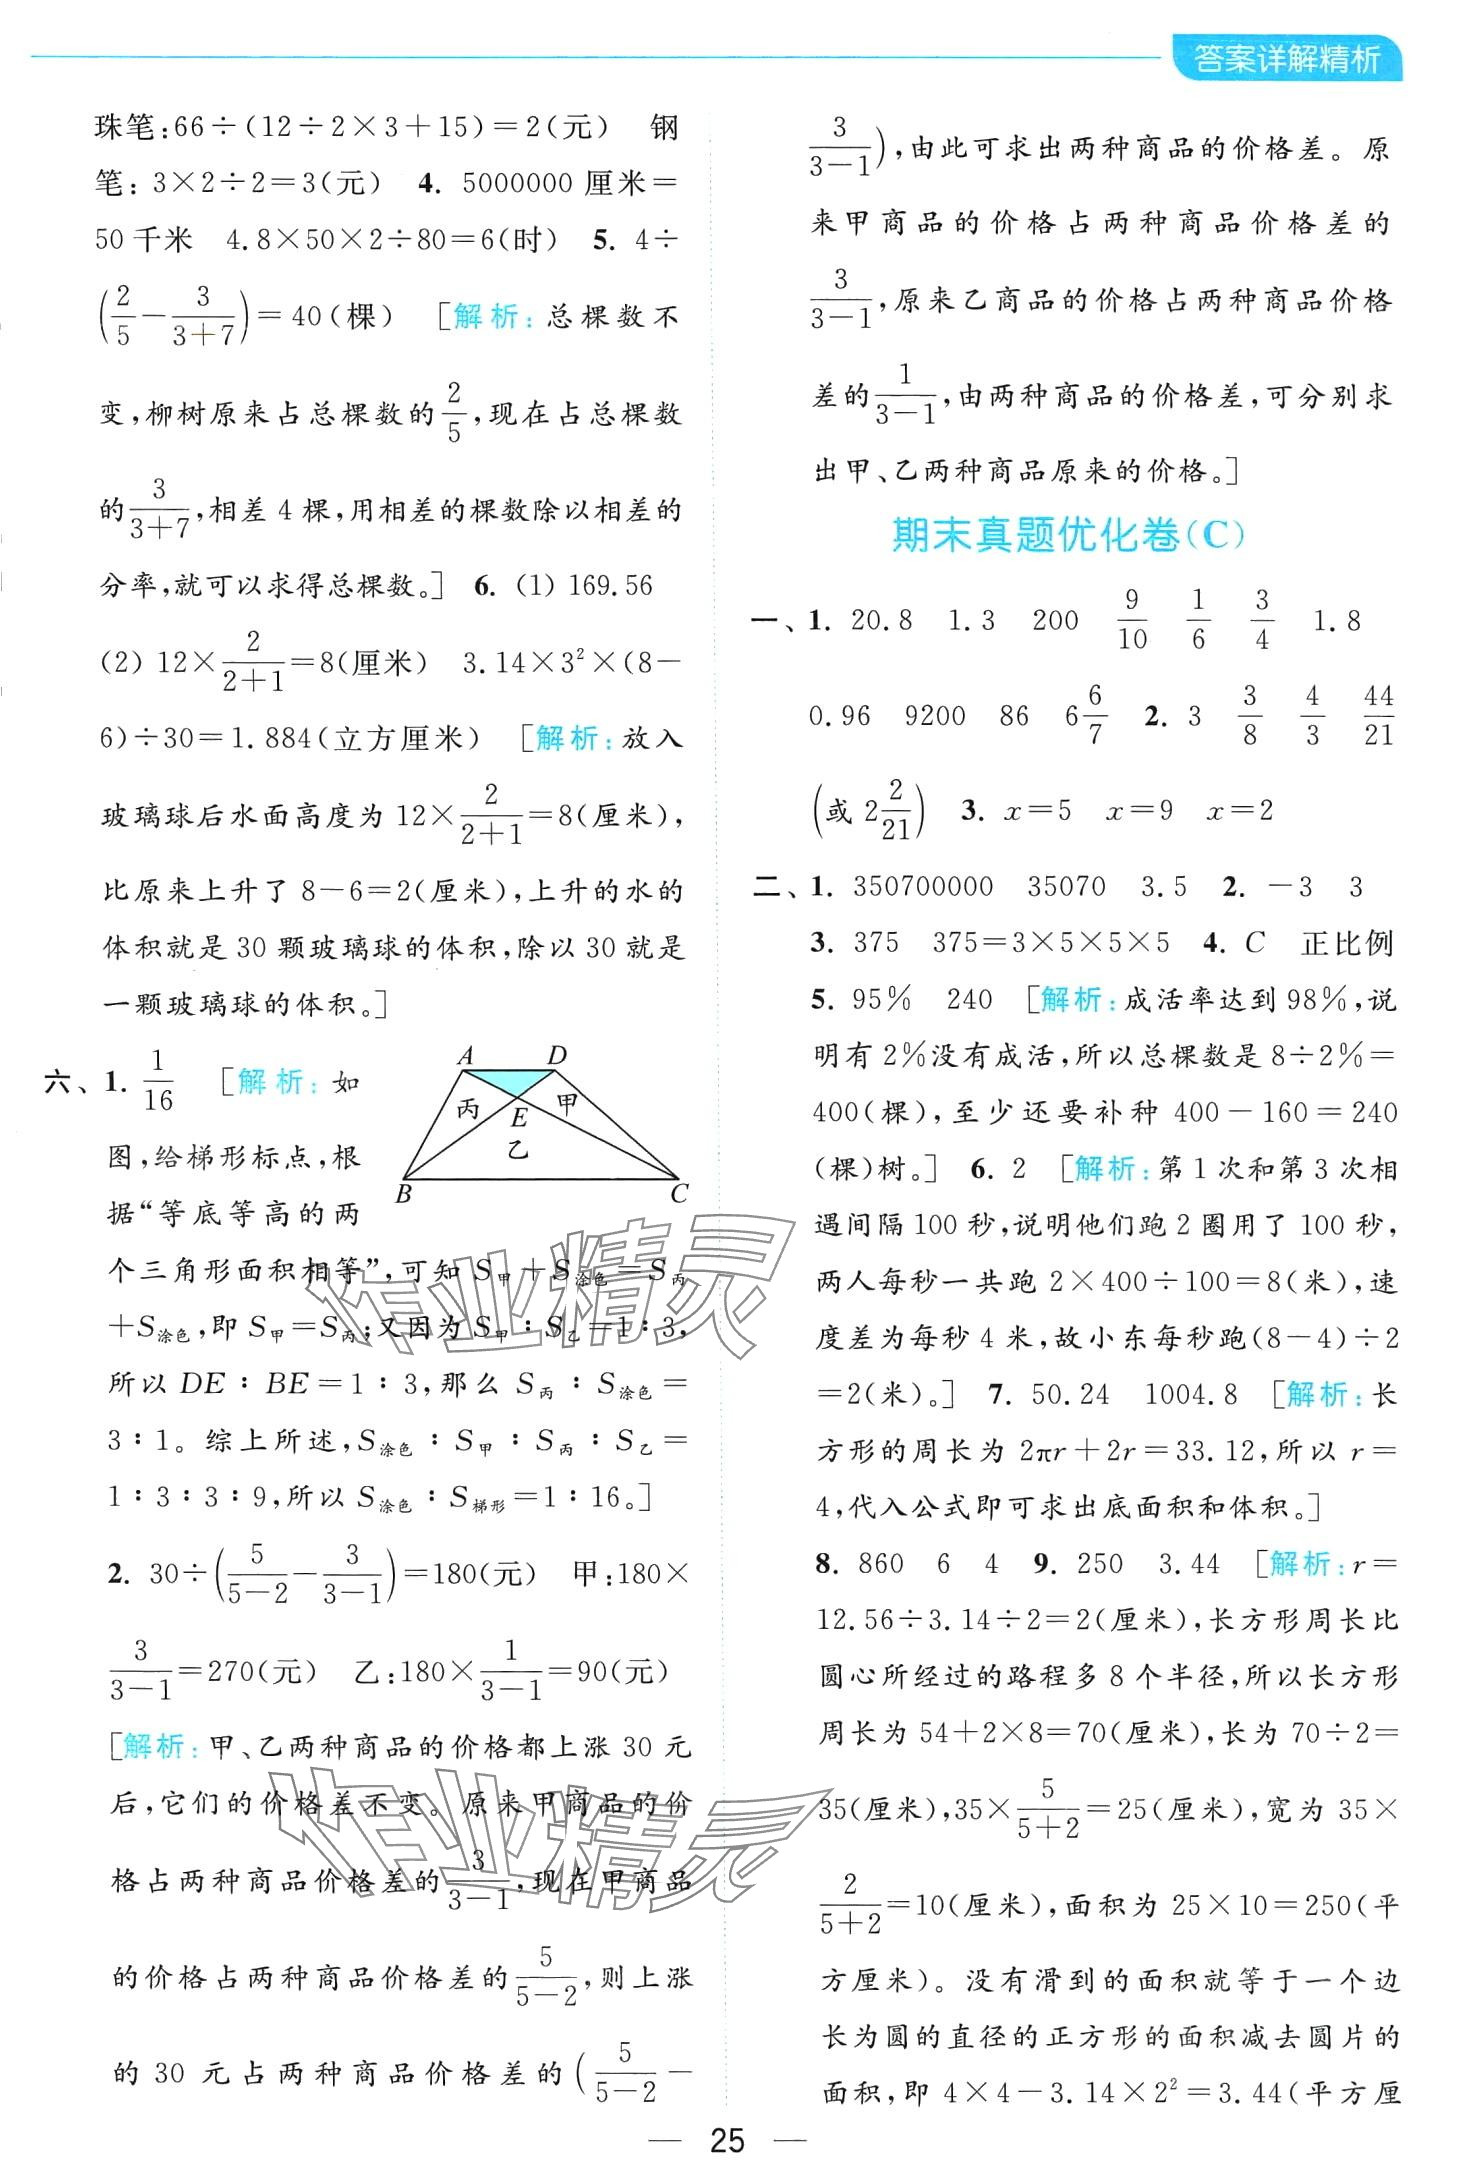 答案详解精析
珠笔:66÷(12÷2×3+15)=2(元) 钢
笔:3×2÷2=3(元) 4. 5000000厘米=
50千米 4.8×50×2÷80=6(时) 5. 4÷
(2/5-3/(3+7))=40(棵) [解析:总棵数不
变,柳树原来占总棵数的2/5,现在占总棵数
的3/(3+7),相差4棵,用相差的棵数除以相差的
分率,就可以求得总棵数。] 6. (1) 169.56
(2) 12×2/(2+1)=8(厘米) 3.14×3²×(8-
6)÷30=1.884(立方厘米) [解析:放入
玻璃球后水面高度为12×2/(2+1)=8(厘米),
比原来上升了8-6=2(厘米),上升的水的
体积就是30颗玻璃球的体积,除以30就是
一颗玻璃球的体积。]
六、1. 1/16 [解析:如
图,给梯形标点,根
据“等底等高的两
A D
丙 甲
E
乙
B C
个三角形面积相等”,可知S甲+S涂色=S丙
+S涂色,即S甲=S丙;又因为S甲:S乙=1:3,
所以DE:BE=1:3,那么S丙:S涂色=
3:1。综上所述,S涂色:S甲:S丙:S乙=
1:3:3:9,所以S涂色:S梯形=1:16。]
2. 30÷(5/(5-2)-3/(3-1))=180(元) 甲:180×
3/(3-1)=270(元) 乙:180×1/(3-1)=90(元)
[解析:甲、乙两种商品的价格都上涨30元
后,它们的价格差不变。原来甲商品的价
格占两种商品价格差的3/(3-1),现在甲商品
的价格占两种商品价格差的5/(5-2),则上涨
的30元占两种商品价格差的(5/(5-2)-
3/(3-1)),由此可求出两种商品的价格差。原
来甲商品的价格占两种商品价格差的
3/(3-1),原来乙商品的价格占两种商品价格
差的1/(3-1),由两种商品的价格差,可分别求
出甲、乙两种商品原来的价格。]
期末真题优化卷(C)
一、1. 20.8 1.3 200 9/10 1/6 3/4 1.8
0.96 9200 86 6 6/7 2. 3 3/8 4/3 44/21
(或2 2/21) 3. x=5 x=9 x=2
二、1. 350700000 35070 3.5 2. -3 3
3. 375 375=3×5×5×5 4. C 正比例
5. 95% 240 [解析:成活率达到98%,说
明有2%没有成活,所以总棵数是8÷2%=
400(棵),至少还要补种400-160=240
(棵)树。] 6. 2 [解析:第1次和第3次相
遇间隔100秒,说明他们跑2圈用了100秒,
两人每秒一共跑2×400÷100=8(米),速
度差为每秒4米,故小东每秒跑(8-4)÷2
=2(米)。] 7. 50.24 1004.8 [解析:长
方形的周长为2πr+2r=33.12,所以r=
4,代入公式即可求出底面积和体积。]
8. 860 6 4 9. 250 3.44 [解析:r=
12.56÷3.14÷2=2(厘米),长方形周长比
圆心所经过的路程多8个半径,所以长方形
周长为54+2×8=70(厘米),长为70÷2=
35(厘米),35×5/(5+2)=25(厘米),宽为35×
2/(5+2)=10(厘米),面积为25×10=250(平
方厘米)。没有滑到的面积就等于一个边
长为圆的直径的正方形的面积减去圆片的
面积,即4×4-3.14×2²=3.44(平方厘
— 25 —
作业精灵
作业精灵